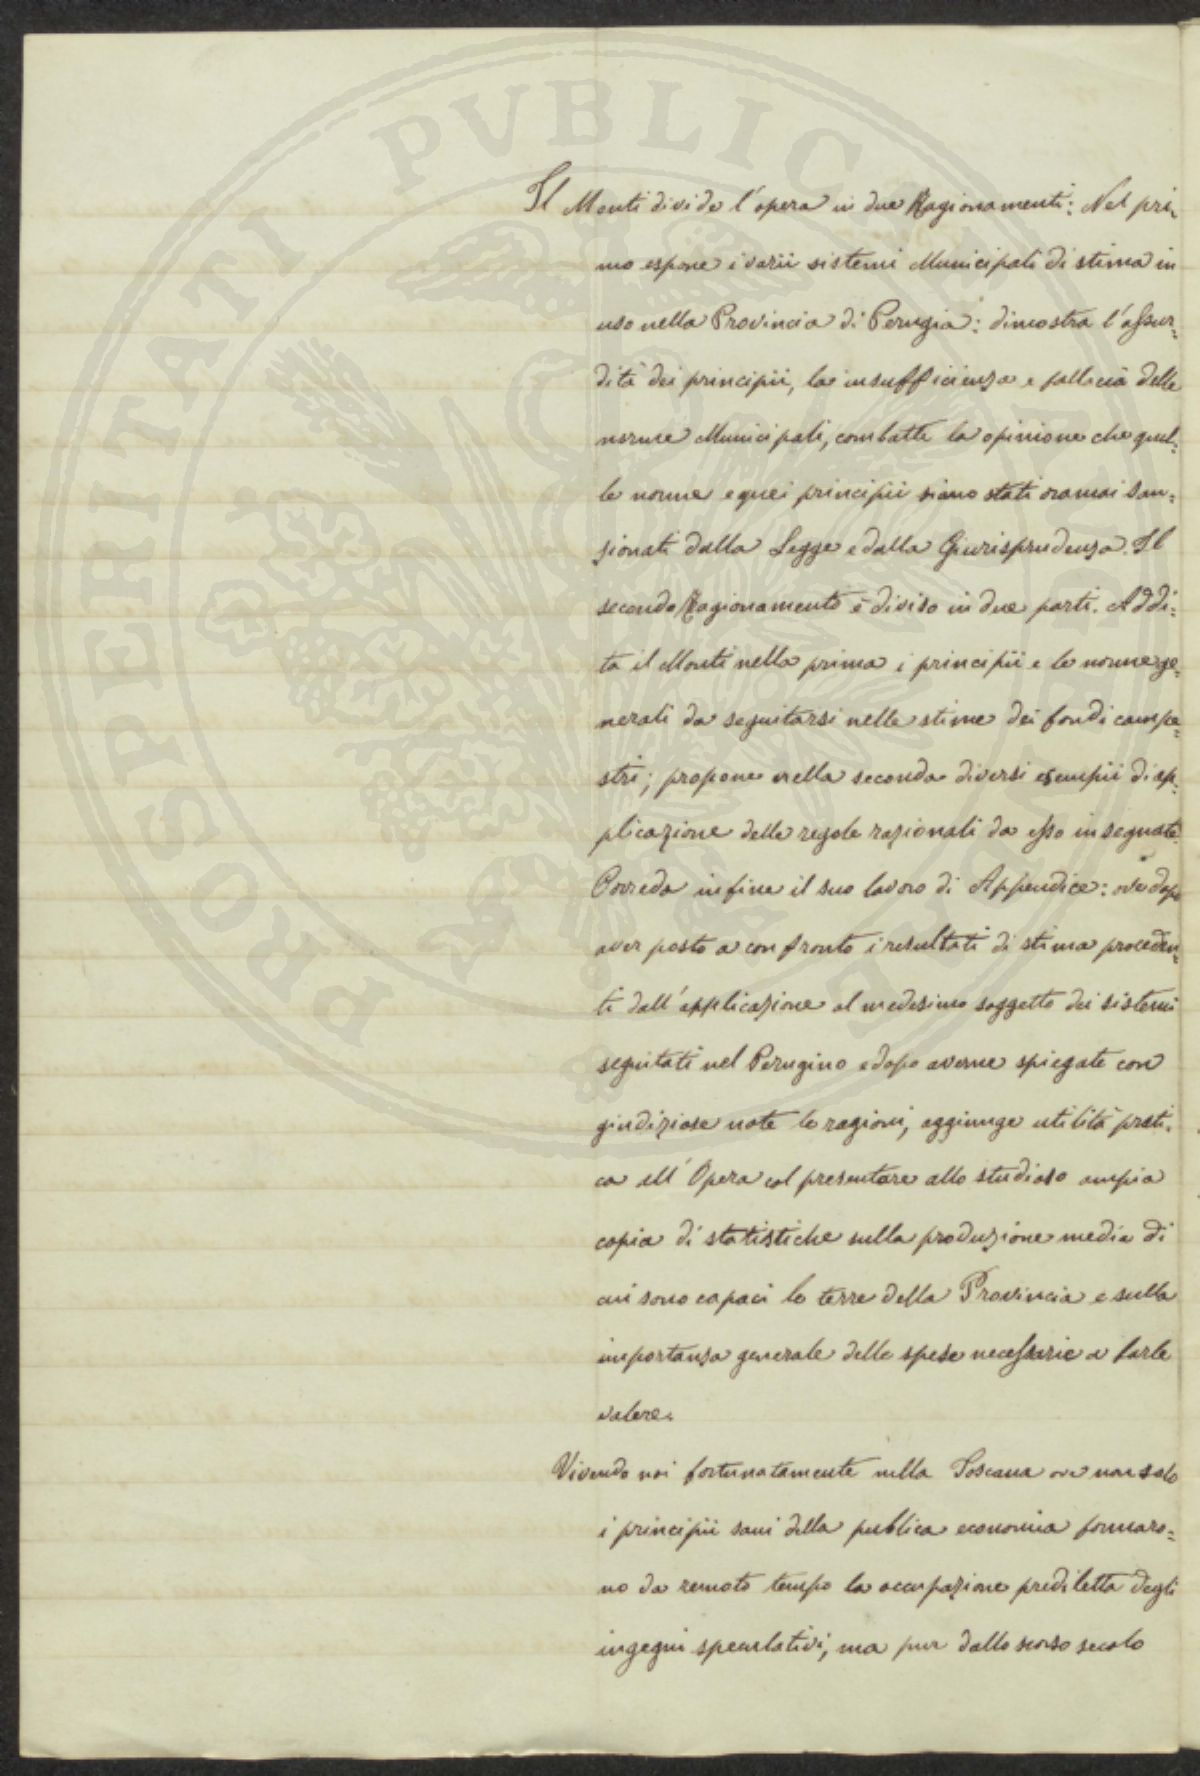 PROSPERITATI PUBLICAE AUGENDAE
Il Monti divide l'opera in due Ragionamenti: Nel pri-
mo espone i varii sistemi Municipali di stima in
uso nella Provincia di Perugia: dimostra l'assur-
dità dei principii, la insufficienza e fallacia delle
norme Municipali, combatte la opinione che quel-
le norme e quei principii siano stati oramai san-
zionati dalla Legge e dalla Giurisprudenza. Il
secondo Ragionamento è diviso in due parti. Addi-
ta il Monti nella prima i principii e le norme ge-
nerali da seguitarsi nelle stime dei fondi campe-
stri; propone nella seconda diversi esempii di ap-
plicazione delle regole razionali da esso insegnate.
Correda infine il suo lavoro di Appendice: ove dopo
aver posto a confronto i resultati di stima proceden-
ti dall'applicazione al medesimo soggetto dei sistemi
seguitati nel Perugino e dopo averne spiegate con
giudiziose note le ragioni, aggiunge utilità prati-
ca all'Opera col presentare allo studioso ampia
copia di statistiche sulla produzione media di
cui sono capaci le terre della Provincia e sulla
importanza generale delle spese necessarie a farle
valere.
Vivendo noi fortunatamente nella Toscana ove non solo
i principii sani della publica economia formaro-
no da remoto tempo la occupazione prediletta degli
ingegni speculativi, ma pur dallo scorso secolo